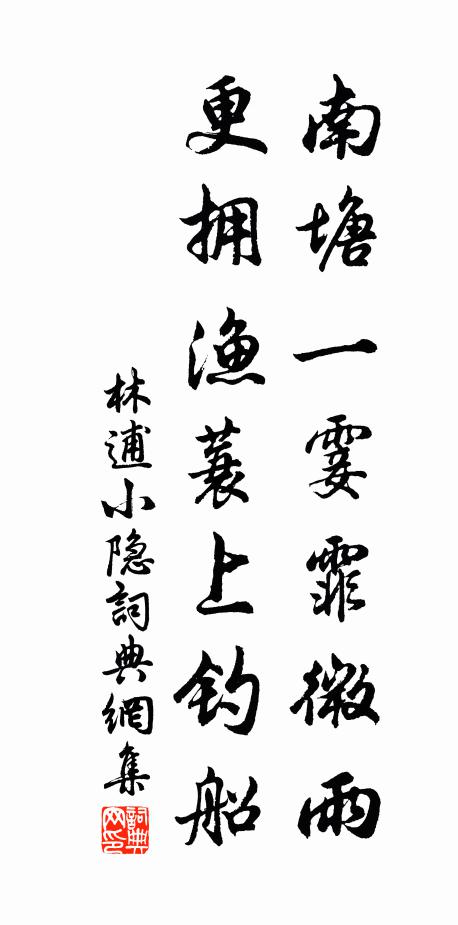 南塘一霎霏微雨
更拥漁蓑上钓船
林逋小隐詞典網集
詞典
网印